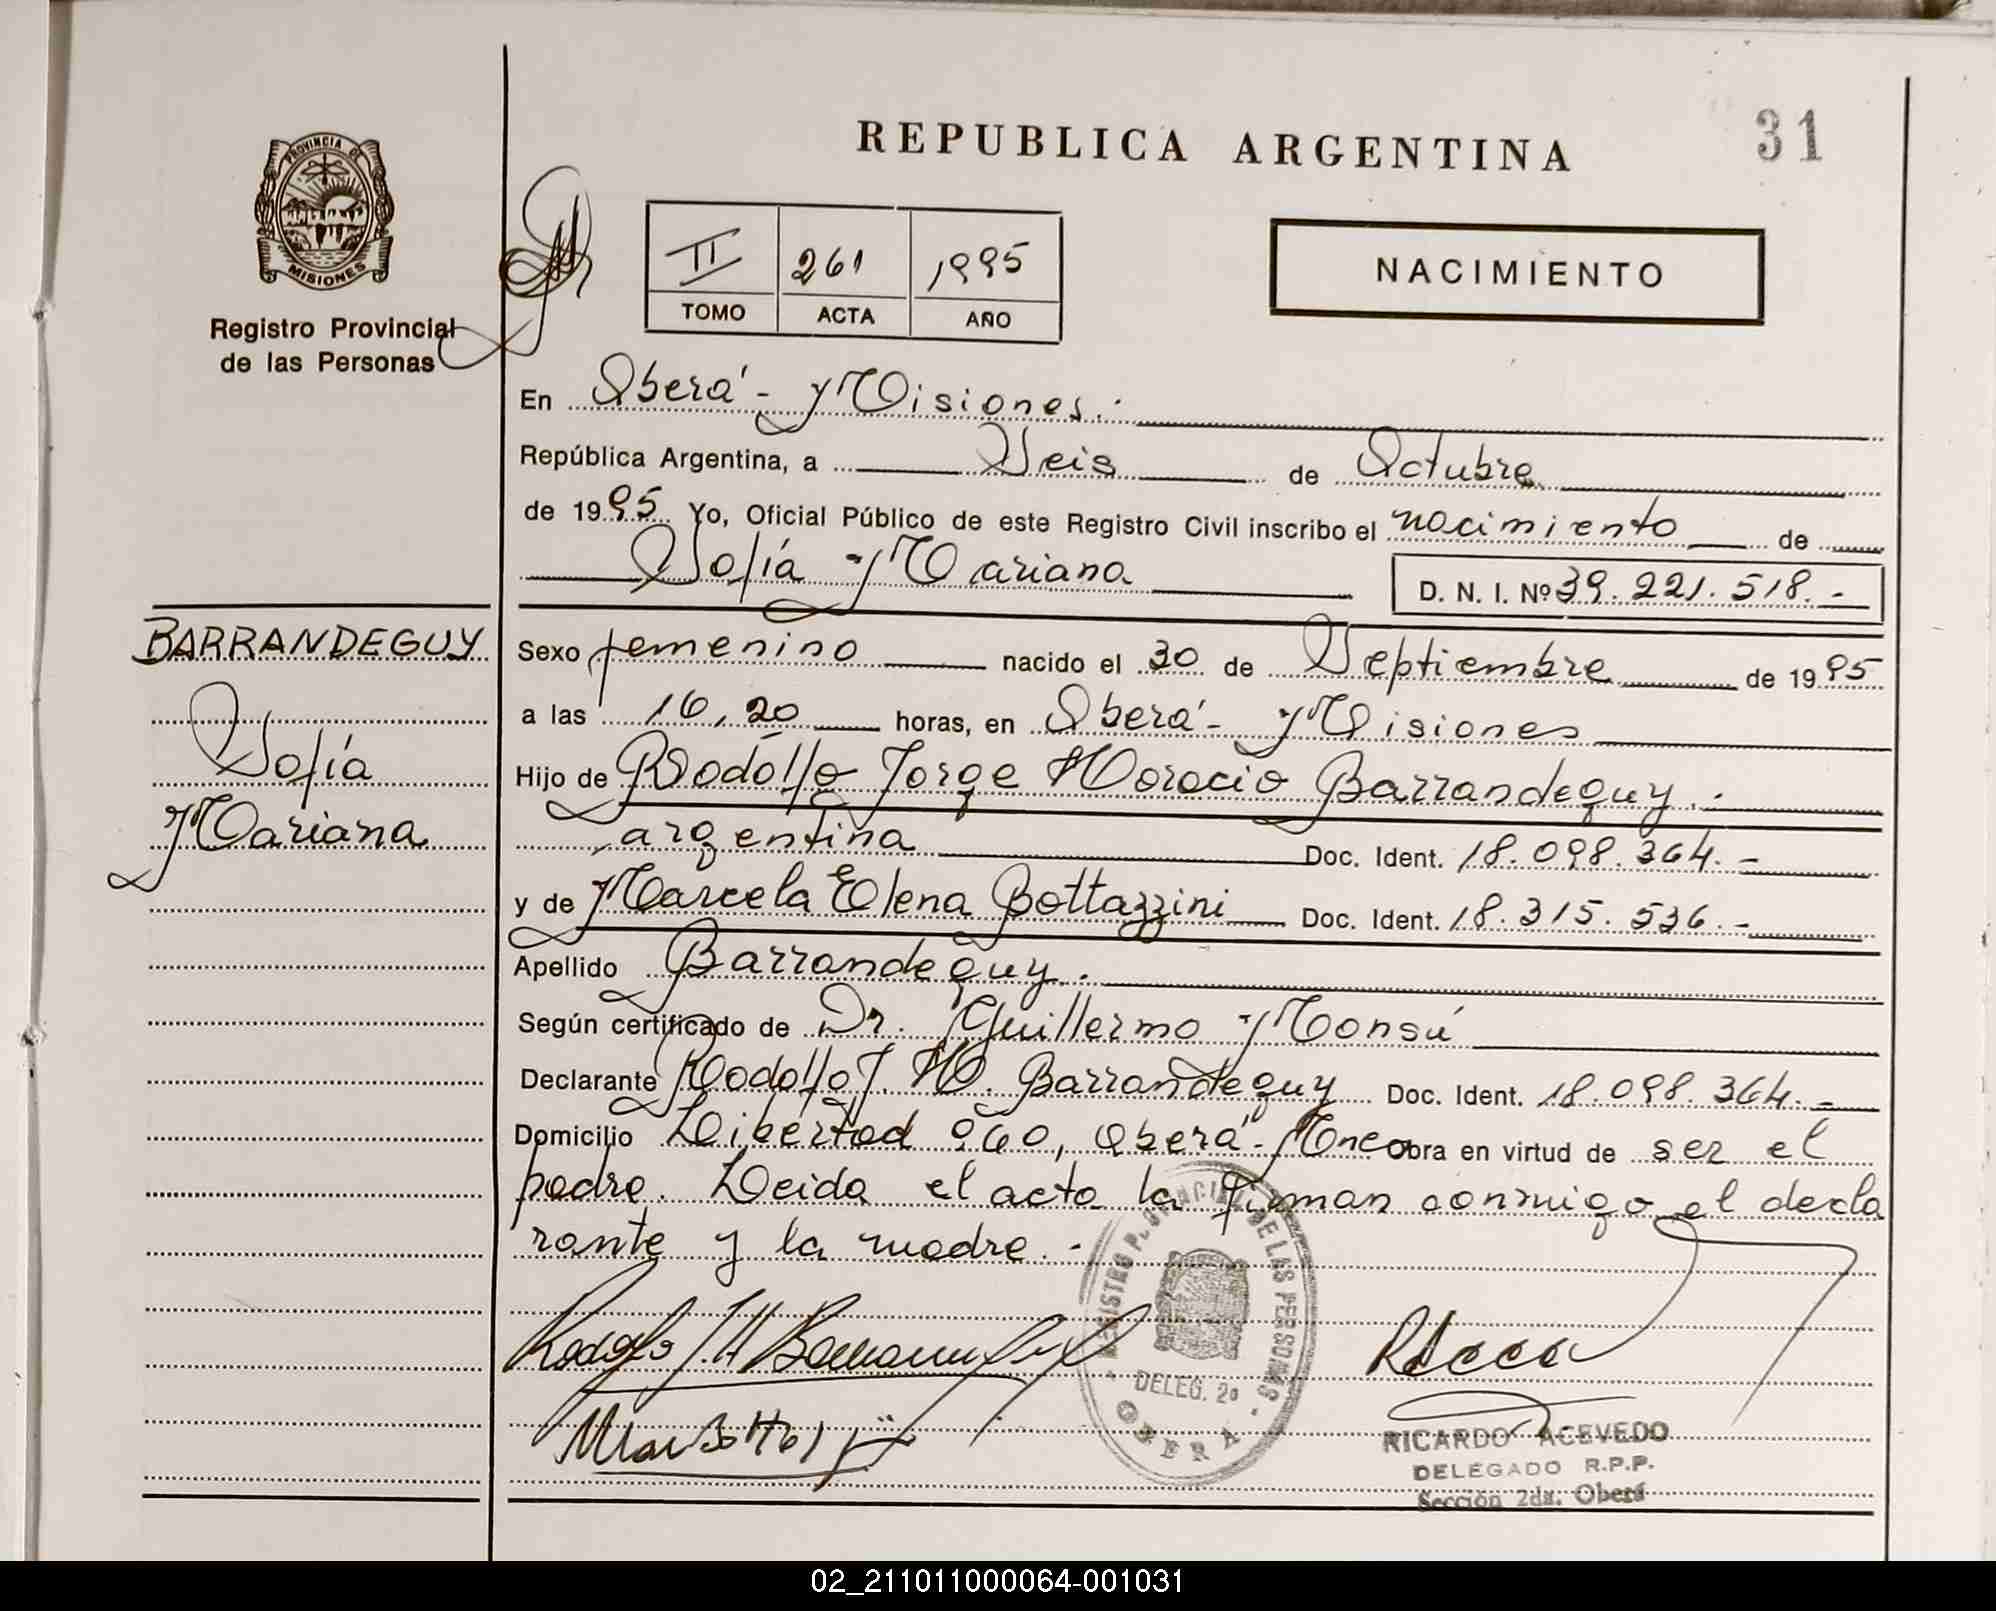 REPUBLICA ARGENTINA
31
PROVINCIA DE
MISIONES
Registro Provincial
de las Personas
II 261 1995
TOMO ACTA AÑO
NACIMIENTO
En Oberá - Misiones.
República Argentina, a Seis de Octubre
de 1995 Yo, Oficial Público de este Registro Civil inscribo el nacimiento de
Sofía Mariana D. N. I. Nº 39.221.518.-
BARRANDEGUY
Sofía
Mariana
Sexo femenino nacido el 30 de Septiembre de 1995
a las 16,20 horas, en Oberá - Misiones
Hijo de Rodolfo Jorge Horacio Barrandeguy.
argentina Doc. Ident. 18.098.364.-
y de Marcela Elena Bottazzini Doc. Ident. 18.315.536.-
Apellido Barrandeguy.
Según certificado de Dr. Guillermo Monsú
Declarante Rodolfo J. H. Barrandeguy Doc. Ident. 18.098.364.-
Domicilio Libertad 960, Oberá - Mnes obra en virtud de ser el
padre. Leida el acta la firman conmigo el decla
rante y la madre.-
REGISTRO PROVINCIAL DE LAS PERSONAS
DELEG. 2ª
OBERA
Rodolfo J. H.
RICARDO ACEVEDO
DELEGADO R.P.P.
Sección 2da. Oberá
02_211011000064-001031